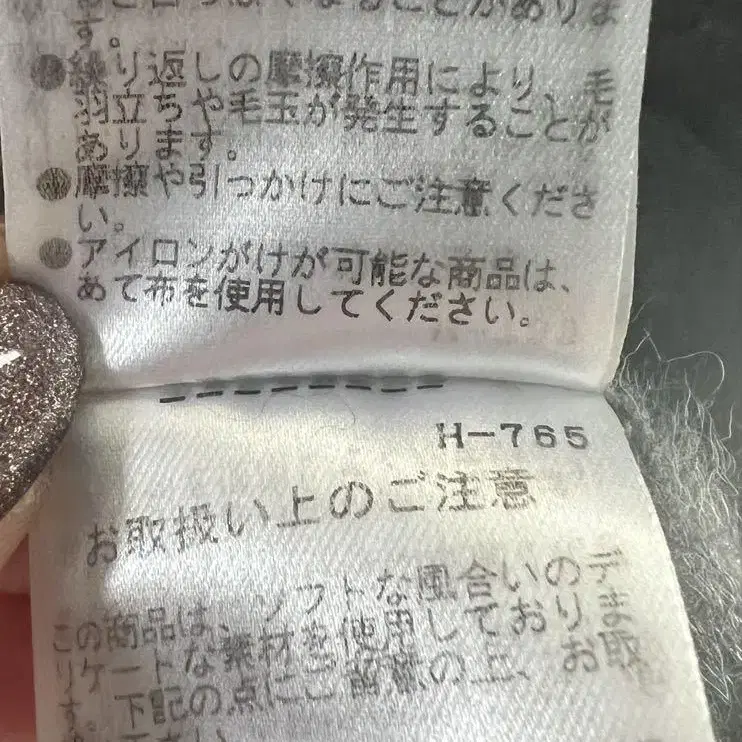 す。
●繰り返しの摩擦作用により、毛
羽立ちや毛玉が発生することが
あります。
●摩擦や引っかけにご注意くださ
い。
●アイロンがけが可能な商品は、
あて布を使用してください。
H-765
お取扱い上のご注意
この商品は、ソフトな風合いのデ
リケートな素材を使用しておりま
す。下記の点にご留意の上、お取